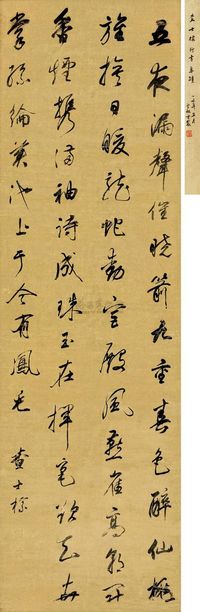 五夜漏聲催曉箭九重春色醉仙桃
旌旗日暖龍蛇動宮殿風燕雀高朝罷
香煙攜滿袖詩成珠玉在揮毫欲知世
掌絲綸美池上于今有鳳毛
查士標
查士標行書